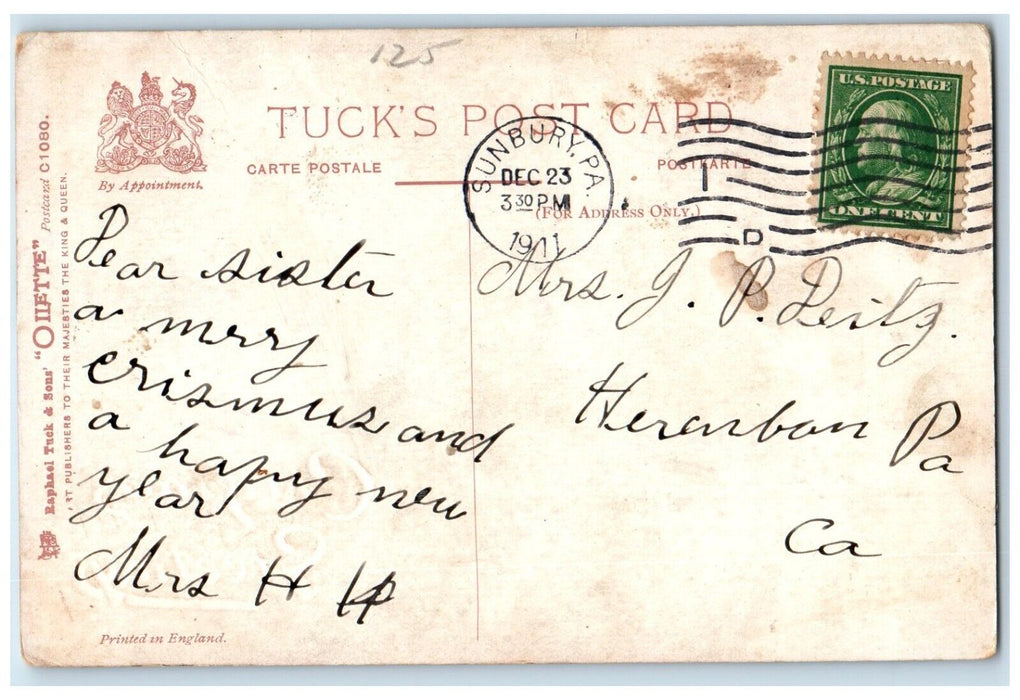 125
TUCK'S POST CARD
CARTE POSTALE
POSTKARTE
(FOR ADDRESS ONLY.)
By Appointment.
Raphael Tuck & Sons' "OILETTE" Postcard C1080.
ART PUBLISHERS TO THEIR MAJESTIES THE KING & QUEEN.
SUNBURY, PA.
DEC 23
3 30 PM
1911
U.S. POSTAGE
ONE CENT
Dear sister
a merry
crismus and
a hapy new
year
Mrs H
Mrs. J. P. Deitz.
Pa
Ca
Printed in England.